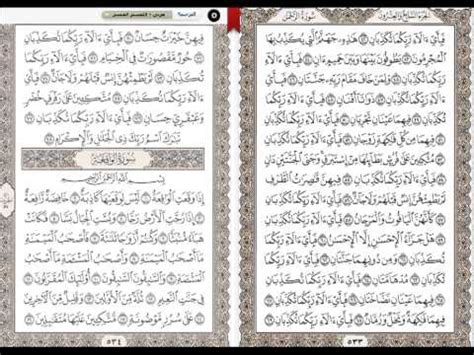 الجزء السابع والعشرون
سورة الرحمن
فَبِأَيِّ ءَالَآءِ رَبِّكُمَا تُكَذِّبَانِ ۝ هَٰذِهِۦ جَهَنَّمُ ٱلَّتِي يُكَذِّبُ بِهَا
ٱلْمُجْرِمُونَ ۝ يَطُوفُونَ بَيْنَهَا وَبَيْنَ حَمِيمٍ ءَانٍ ۝ فَبِأَيِّ
ءَالَآءِ رَبِّكُمَا تُكَذِّبَانِ ۝ وَلِمَنْ خَافَ مَقَامَ رَبِّهِۦ جَنَّتَانِ ۝
فَبِأَيِّ ءَالَآءِ رَبِّكُمَا تُكَذِّبَانِ ۝ ذَوَاتَآ أَفْنَانٍ ۝ فَبِأَيِّ ءَالَآءِ
رَبِّكُمَا تُكَذِّبَانِ ۝ فِيهِمَا عَيْنَانِ تَجْرِيَانِ ۝ فَبِأَيِّ ءَالَآءِ رَبِّكُمَا
تُكَذِّبَانِ ۝ فِيهِمَا مِن كُلِّ فَٰكِهَةٍ زَوْجَانِ ۝ فَبِأَيِّ ءَالَآءِ رَبِّكُمَا
تُكَذِّبَانِ ۝ مُتَّكِـِٔينَ عَلَىٰ فُرُشٍۭ بَطَآئِنُهَا مِنْ إِسْتَبْرَقٍ وَجَنَى ٱلْجَنَّتَيْنِ دَانٍ ۝
فَبِأَيِّ ءَالَآءِ رَبِّكُمَا تُكَذِّبَانِ ۝ فِيهِنَّ قَٰصِرَٰتُ ٱلطَّرْفِ
لَمْ يَطْمِثْهُنَّ إِنسٌ قَبْلَهُمْ وَلَا جَآنٌّ ۝ فَبِأَيِّ ءَالَآءِ رَبِّكُمَا تُكَذِّبَانِ ۝
كَأَنَّهُنَّ ٱلْيَاقُوتُ وَٱلْمَرْجَانُ ۝ فَبِأَيِّ ءَالَآءِ رَبِّكُمَا تُكَذِّبَانِ ۝
هَلْ جَزَآءُ ٱلْإِحْسَٰنِ إِلَّا ٱلْإِحْسَٰنُ ۝ فَبِأَيِّ ءَالَآءِ رَبِّكُمَا
تُكَذِّبَانِ ۝ وَمِن دُونِهِمَا جَنَّتَانِ ۝ فَبِأَيِّ ءَالَآءِ رَبِّكُمَا
تُكَذِّبَانِ ۝ مُدْهَآمَّتَانِ ۝ فَبِأَيِّ ءَالَآءِ رَبِّكُمَا تُكَذِّبَانِ ۝
فِيهِمَا عَيْنَانِ نَضَّاخَتَانِ ۝ فَبِأَيِّ ءَالَآءِ رَبِّكُمَا تُكَذِّبَانِ ۝
فِيهِمَا فَٰكِهَةٌ وَنَخْلٌ وَرُمَّانٌ ۝ فَبِأَيِّ ءَالَآءِ رَبِّكُمَا تُكَذِّبَانِ ۝
٥٣٣
فِيهِنَّ خَيْرَٰتٌ حِسَانٌ ۝ فَبِأَيِّ ءَالَآءِ رَبِّكُمَا تُكَذِّبَانِ
۝ حُورٌ مَّقْصُورَٰتٌ فِي ٱلْخِيَامِ ۝ فَبِأَيِّ ءَالَآءِ رَبِّكُمَا
تُكَذِّبَانِ ۝ لَمْ يَطْمِثْهُنَّ إِنسٌ قَبْلَهُمْ وَلَا جَآنٌّ ۝ فَبِأَيِّ
ءَالَآءِ رَبِّكُمَا تُكَذِّبَانِ ۝ مُتَّكِـِٔينَ عَلَىٰ رَفْرَفٍ خُضْرٍ
وَعَبْقَرِيٍّ حِسَانٍ ۝ فَبِأَيِّ ءَالَآءِ رَبِّكُمَا تُكَذِّبَانِ ۝
تَبَٰرَكَ ٱسْمُ رَبِّكَ ذِي ٱلْجَلَٰلِ وَٱلْإِكْرَامِ ۝
سورة الواقعة
بِسْمِ ٱللَّهِ ٱلرَّحْمَٰنِ ٱلرَّحِيمِ
إِذَا وَقَعَتِ ٱلْوَاقِعَةُ ۝ لَيْسَ لِوَقْعَتِهَا كَاذِبَةٌ ۝ خَافِضَةٌ رَّافِعَةٌ
۝ إِذَا رُجَّتِ ٱلْأَرْضُ رَجًّا ۝ وَبُسَّتِ ٱلْجِبَالُ بَسًّا ۝ فَكَانَتْ
هَبَآءً مُّنۢبَثًّا ۝ وَكُنتُمْ أَزْوَٰجًا ثَلَٰثَةً ۝ فَأَصْحَٰبُ ٱلْمَيْمَنَةِ
مَآ أَصْحَٰبُ ٱلْمَيْمَنَةِ ۝ وَأَصْحَٰبُ ٱلْمَشْـَٔمَةِ مَآ أَصْحَٰبُ
ٱلْمَشْـَٔمَةِ ۝ وَٱلسَّٰبِقُونَ ٱلسَّٰبِقُونَ ۝ أُو۟لَٰٓئِكَ ٱلْمُقَرَّبُونَ ۝
فِي جَنَّٰتِ ٱلنَّعِيمِ ۝ ثُلَّةٌ مِّنَ ٱلْأَوَّلِينَ ۝ وَقَلِيلٌ مِّنَ ٱلْءَاخِرِينَ
۝ عَلَىٰ سُرُرٍ مَّوْضُونَةٍ ۝ مُّتَّكِـِٔينَ عَلَيْهَا مُتَقَٰبِلِينَ ۝
٥٣٤